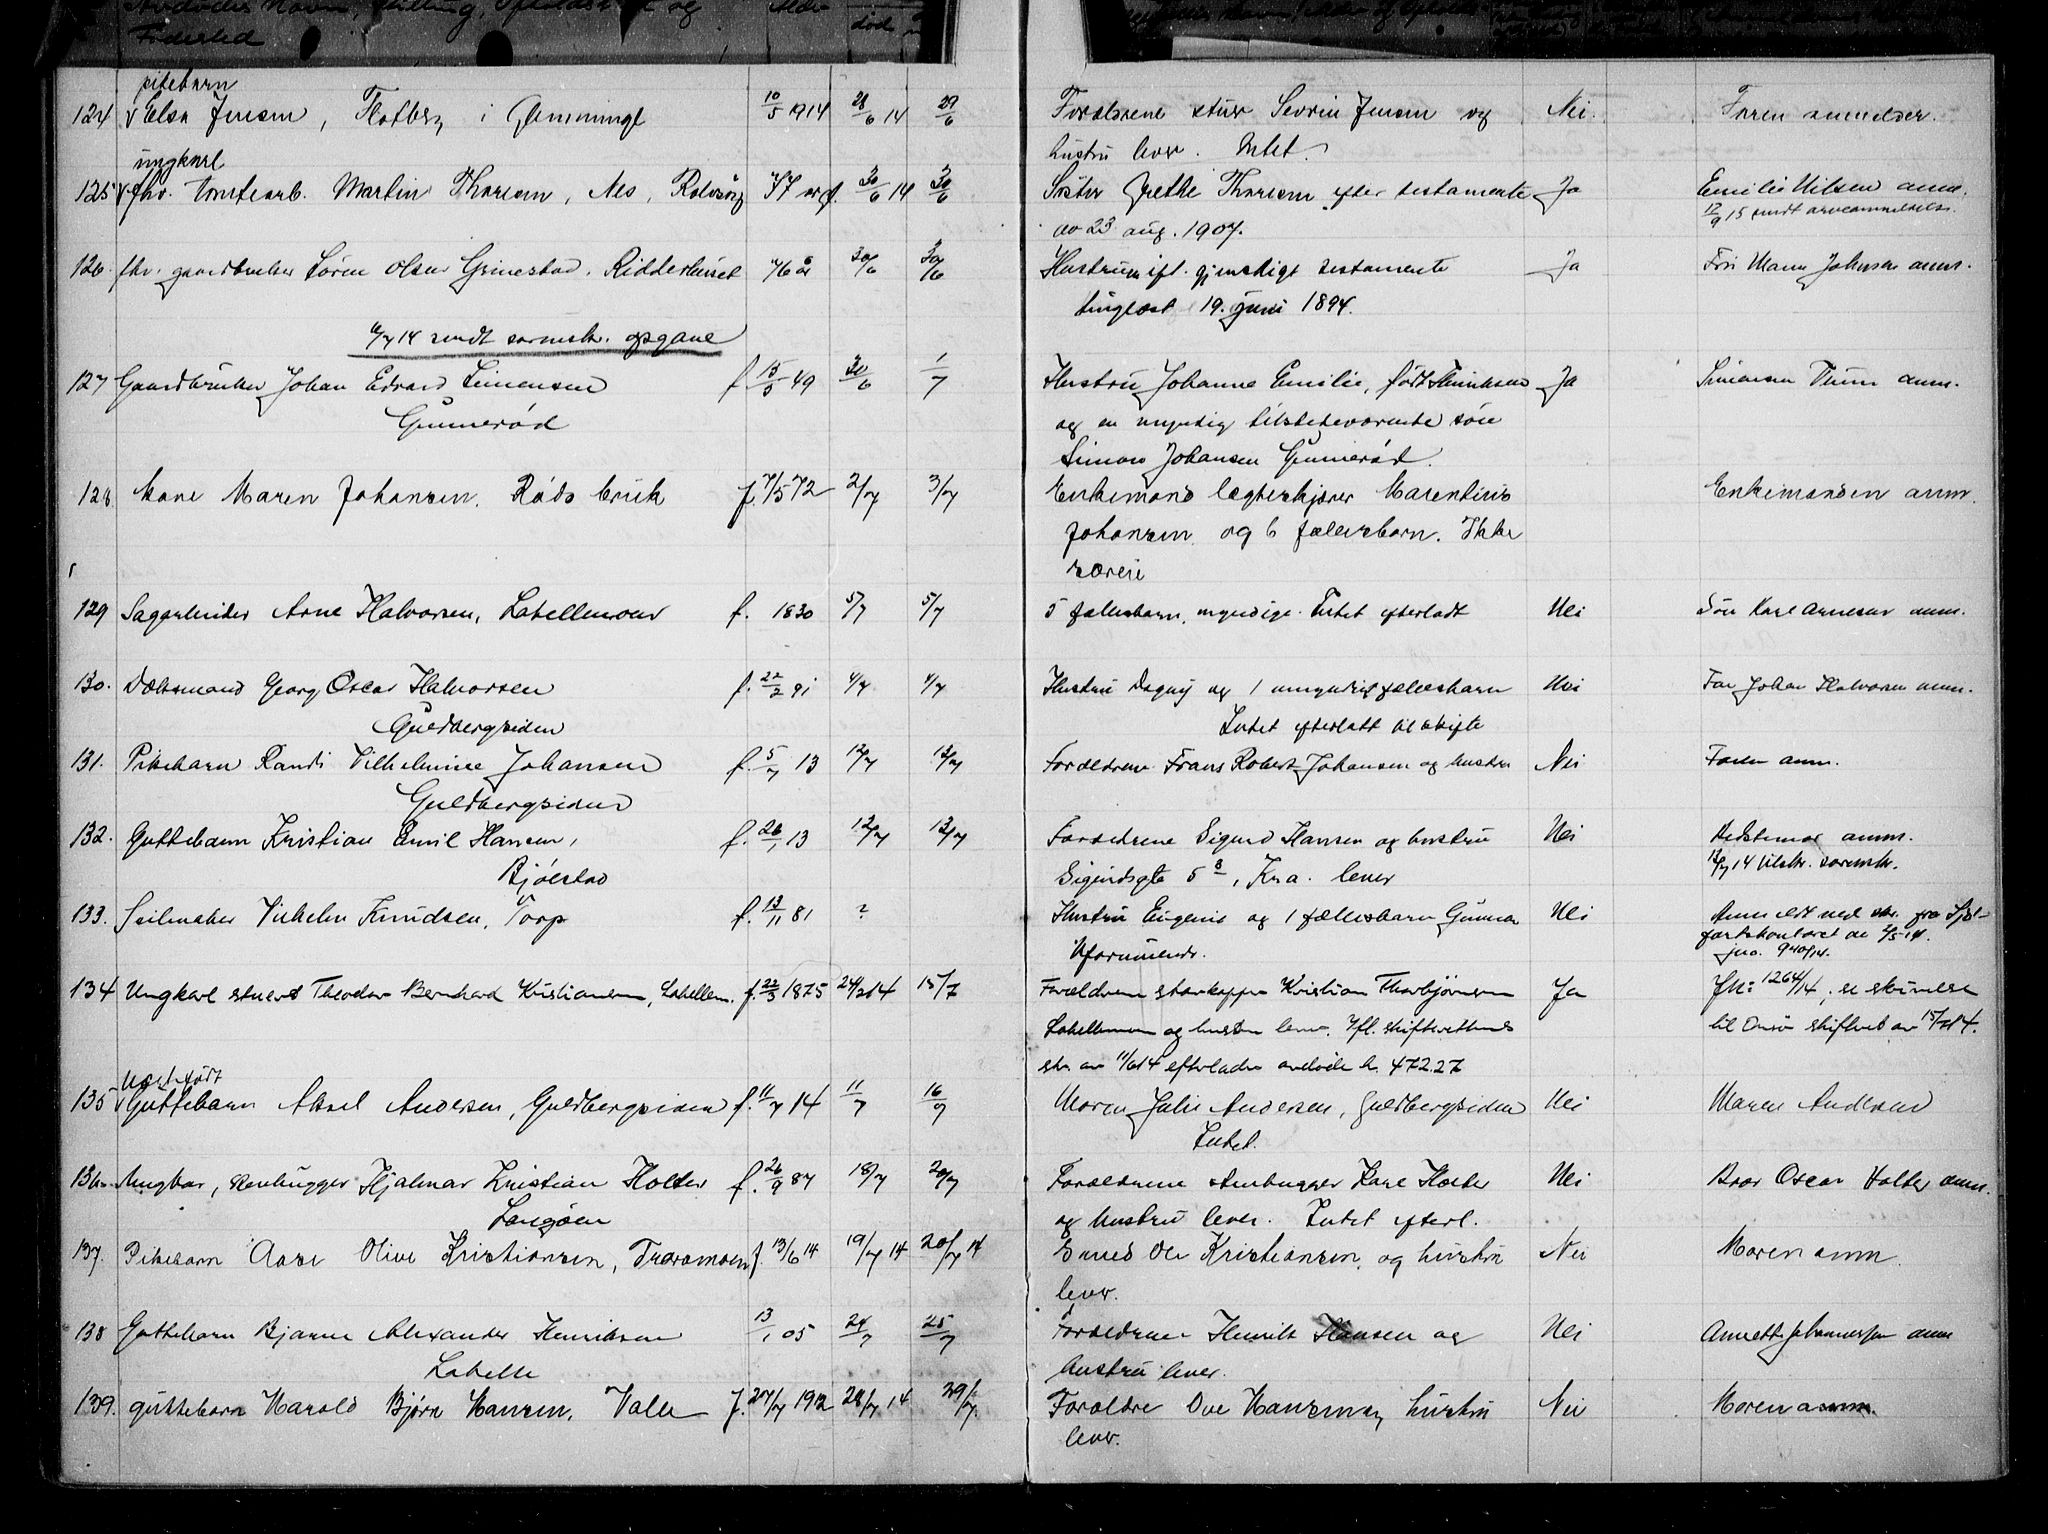 Fødested
død
pikebarn
124 Elsa Jensen, Flatberg i Glemminge 10/5 1914 28/6 14 29/6 Forældrene stuer Severin Jensen og Nei. Faren anmelder.
hustru lever. Intet.
ungkarl
125 fhv. tomtearb. Martin Thoresen, Nes, Rolvsøy 77 år 30/6 14 30/6 Søster Grethe Thoresen efter testamente Ja Emilie Nilsen anm.
av 23 aug. 1907. 17/9 15 sendt
126 fhv. gaardbruker Søren Olsen Grimstad, Ridderhuset 76 år 30/6 30/6 Hustruen ifl. gjensidigt testamente Ja Johnsen anm.
tinglæst 19. juni 1894.
6/7 14 sendt sorenskr. opgave
127 Gaardbruker Johan Edvard Simensen f 15/5 49 30/6 1/7 Hustru Johanne Emilie, født Henriksen Ja Simonsen Thune anm.
Gunnerød og en myndig tilstedeværende søn
Simon Johansen Gunnerød.
128. Kone Maren Johansen. Røds bruk f. 7/5 72 2/7 3/7 Enkemand lægterkjører Marentius Enkemanden anm.
Johansen og 6 fællesbarn. Ikke
særeie
129 Sagarbeider Arne Halvorsen, Lahellemoen f. 1830 5/7 5/7 5 fællesbarn, myndige. Intet efterladt Nei Søn Karl Arnesen anm.
130. Dæksmand Georg Oscar Halvorsen f. 22/2 91 4/7 4/7 Hustru Dagny og 1 umyndigt fællesbarn Nei Far Johan Halvorsen anm.
Guldbergsiden Intet efterlatt til skifte
131. Pikebarn Randi Vilhelmine Johansen f. 5/7 13 12/7 13/7 Forældrene Frans Robert Johansen og hustru Nei Faren anm.
Guldbergsiden
132. Guttebarn Kristian Emil Hansen, f. 26/1 13 12/7 13/7 Forældrene Sigurd Hansen og hustru Nei Bedstemor anm.
Bjølstad Sigurdsgte 5, Kra. lever 13/7 14 tilskr. sorenskr.
133. Seilmaker Vilhelm Knudsen, Torp f. 13/11 81 ? Hustru Eugenie og 1 fællesbarn Gunnar Nei Anmeldt ved skr. fra Sjø-
Uformuende. fartskontoret av 2/5-14.
jno. 940/14.
134 Ungkarl stuert Theodor Bernhard Kristiansen, Lahellem. f. 22/3 1875 24/2 14 15/7 Forældrene Kristian Thorbjørnsen Ja Jn: 1264/14, se skrivelse
Lahellemoen og hustru lever. Ifl. skifterettens til Onsø skifteret av 15/7 14.
skr. av 11/6 14 efterlader avdøde kr. 472.27
uegtefødt
135 Guttebarn Aksel Andersen, Guldbergsiden f. 11/7 14 11/7 16/7 Moren Julie Andersen, Guldbergsiden Nei Maren Andersen
Intet.
136. Ungkar, stenhugger Hjalmar Kristian Holter f. 26/9 87 18/7 20/7 Forældrene stenhugger Karl Holter Nei Bror Oscar Holter anm.
Langøen og hustru lever. Intet efterl.
137. Pikebarn Aase Olive Kristiansen, Traramoen f. 13/6 14 19/7 14 20/7 14 Smed Ole Kristiansen, og hustru Nei Moren anm.
lever.
138 Guttebarn Bjarne Alexander Henriksen 13/1 05 24/7 25/7 Forældrene Henrik Hansen og Nei Annette Johannessen anm
Lahelle hustru lever.
139. guttebarn Harald Bjørn Hansen, Valle f. 27/7 1912 28/7 14 29/7. Forældre Ove Hansen og hustru Nei Moren anm.
lever.